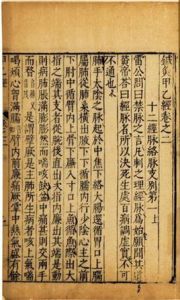 鍼灸甲乙經卷之二
十二經脉絡脉支別第一上
雷公問曰禁脉之言凡刺之理經脉為始願聞其道
黃帝答曰經脉者所以決死生處百病調虛實不可
不通也
肺手太陰之脉起於中焦下絡大腸還循胃口上膈
屬肺從肺系橫出腋下下循臑內行少陰心主之前
下肘中循臂內上骨下廉入寸口上魚循魚際出大
指之端其支者從腕後直出次指內廉出其端是動
則病肺脹滿膨膨而喘咳缺盆中痛甚則交兩手
而瞀是謂臂厥是主肺所生病者咳上氣喘
喝煩心胸滿臑臂內前廉痛厥掌中熱氣盛有餘